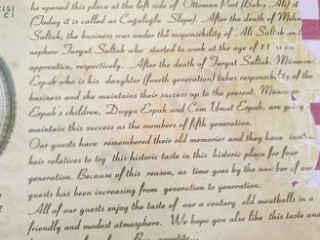 İSİ
Cİ
he opened this place at the left side of Ottoman Port (Bab-ı Ali) at
Today it is called as Cağaloğlu Slope). After the death of
Saltuk, the business was under the responsibility of Ali Saltuk and
nephew Turgut Saltuk who started to work at the age of 11
apprentice, respectively. After the death of Turgut Saltuk,
Erpak who is his daughter (fourth generation) takes responsibility of the
business and she maintains their success up to the present,
Erpak's children, Duygu Erpak and Cem Umut Erpak, are
maintain this success as the members of fifth generation.
Our guests have remembered their old memories and they have
heir relatives to try this historic taste in this historic place for four
generation. Because of this reason, as time goes by the number of our
guests has been increasing from generation to generation.
All of our guests enjoy the taste of our a century old meatballs in a
friendly and modest atmosphere. We hope you also like this taste and